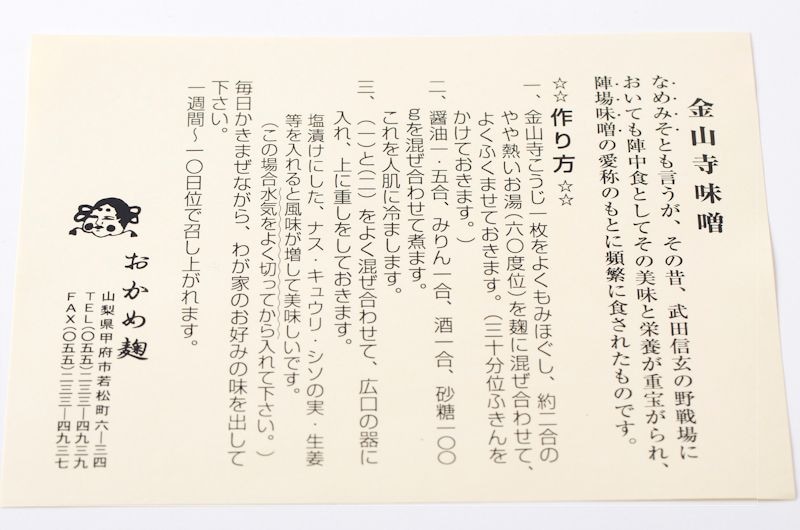 金山寺味噌
なめみそとも言うが、その昔、武田信玄の野戦場に
おいても陣中食としてその美味と栄養が重宝がられ、
陣場味噌の愛称のもとに頻繁に食されたものです。
☆☆作り方☆☆
一、金山寺こうじ一枚をよくもみほぐし、約二合の
やや熱いお湯(六〇度位)を麹に混ぜ合わせて、
よくふくませておきます。(三十分位ふきんを
かけておきます。)
二、醤油一・五合、みりん一合、酒一合、砂糖一〇〇
gを混ぜ合わせて煮ます。
これを人肌に冷まします。
三、(一)と(二)をよく混ぜ合わせて、広口の器に
入れ、上に重しをしておきます。
塩漬けにした、ナス・キュウリ・シソの実・生姜
等を入れると風味が増して美味しいです。
(この場合水気をよく切ってから入れて下さい。)
毎日かきまぜながら、わが家のお好みの味を出して
下さい。
一週間~一〇日位で召し上がれます。
おかめ麹
山梨県甲府市若松町六―三四
TEL(〇五五)二三三―四九三九
FAX(〇五五)二三三―四九三七